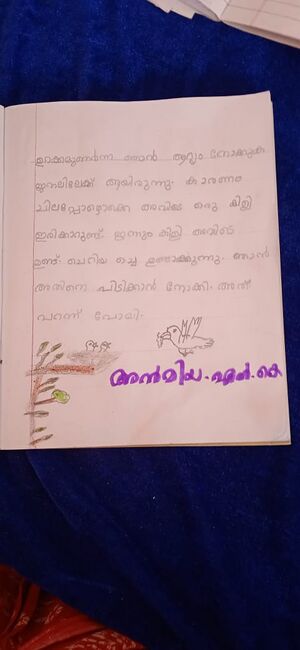 ഉറക്കമുണർന്ന ഞാൻ ആദ്യം നോക്കുക
ജനലിലേക്ക് ആയിരുന്നു. കാരണം
ചിലപ്പോഴൊക്കെ അവിടെ ഒരു കിളി
ഇരിക്കാറുണ്ട്. ഇന്നും കിളി അവിടെ
ഉണ്ട്. ചെറിയ ഒച്ച ഉണ്ടാക്കുന്നു. ഞാൻ
അതിനെ പിടിക്കാൻ നോക്കി. അത്
പറന്ന് പോയി.
അൻമിയ. എൻ. കെ